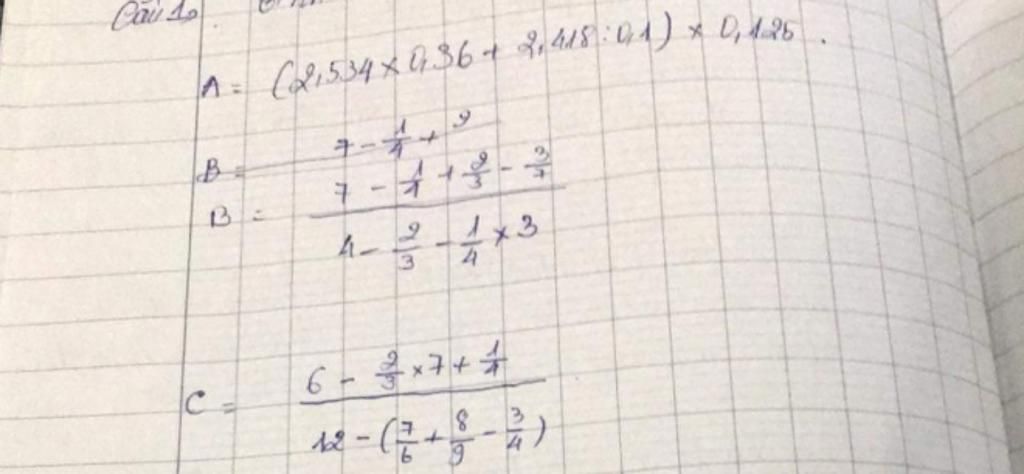 Câu 1.
A = (2,534 × 0,36 + 2,418 : 0,1) × 0,125.
B = 7 - 1/4 + 2
B = (7 - 1/4 + 2/3 - 3/7) / (4 - 2/3 - 1/4 × 3)
C = (6 - 2/3 × 7 + 1/4) / (12 - (7/6 + 8/9 - 3/4))